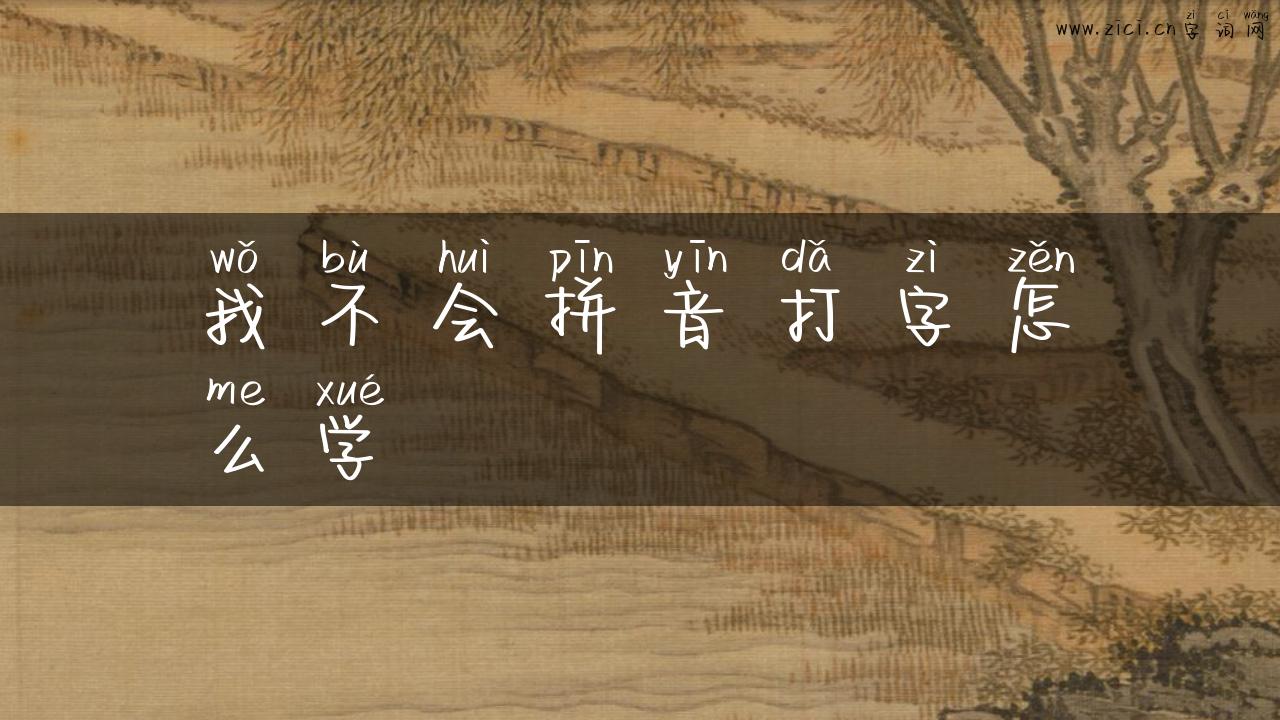 zì cí wǎng
www.zici.cn字词网
wǒ bù huì pīn yīn dǎ zì zěn
我不会拼音打字怎
me xué
么学